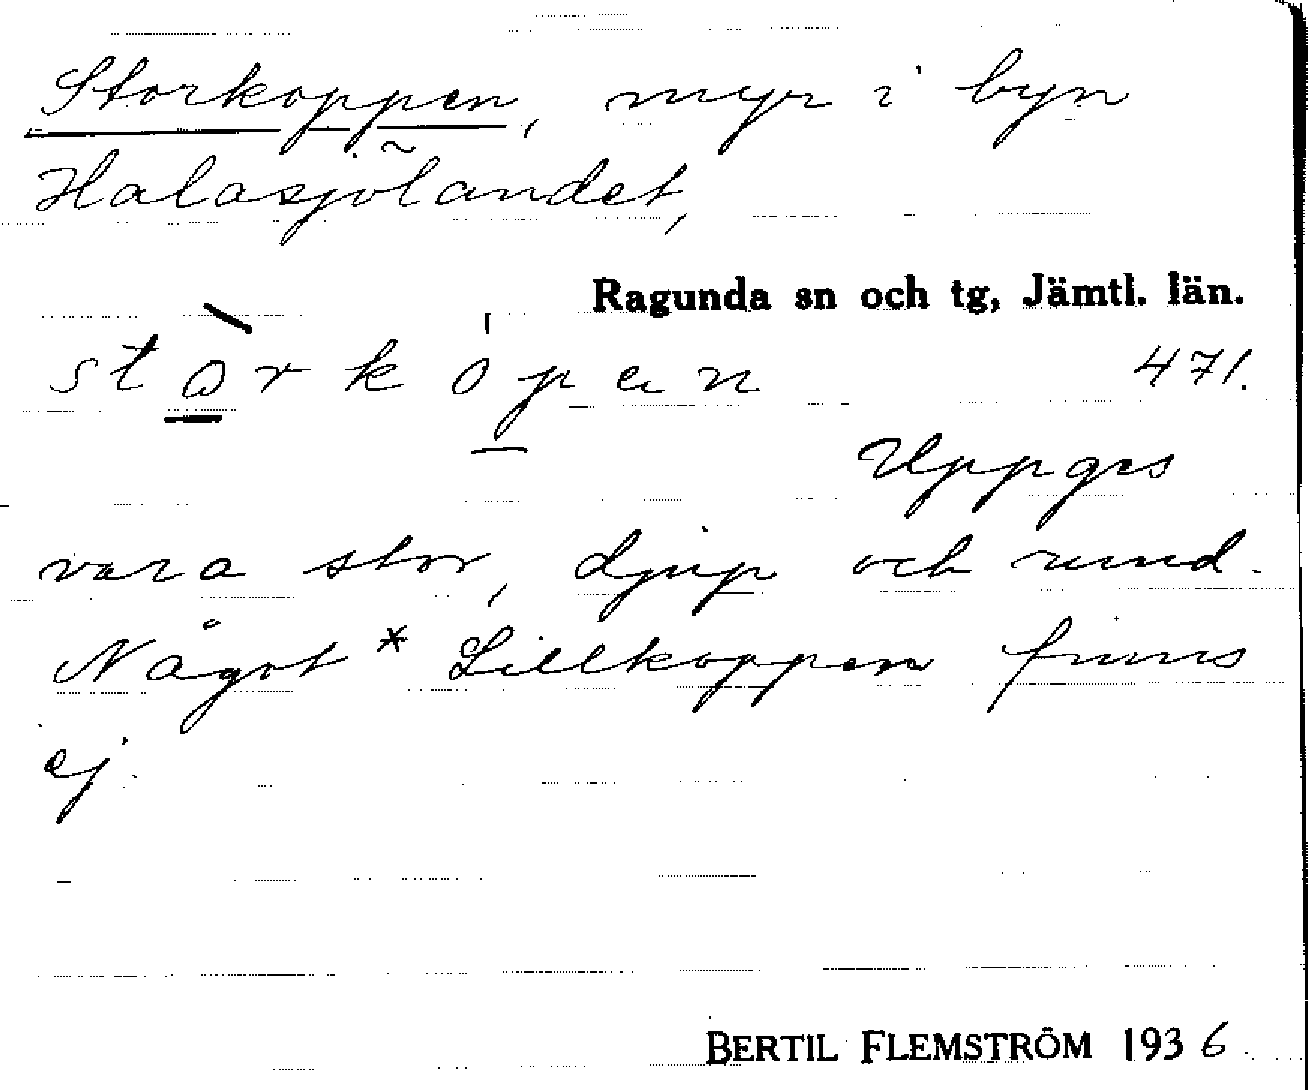 Storkoppen, myr i byn
Halasjölandet,
Ragunda sn och tg, Jämtl. län.
stòrkópen 471.
Uppges
vara stor, djup och rund.
Något * Lillkoppen finns
ej.
BERTIL FLEMSTRÖM 1936